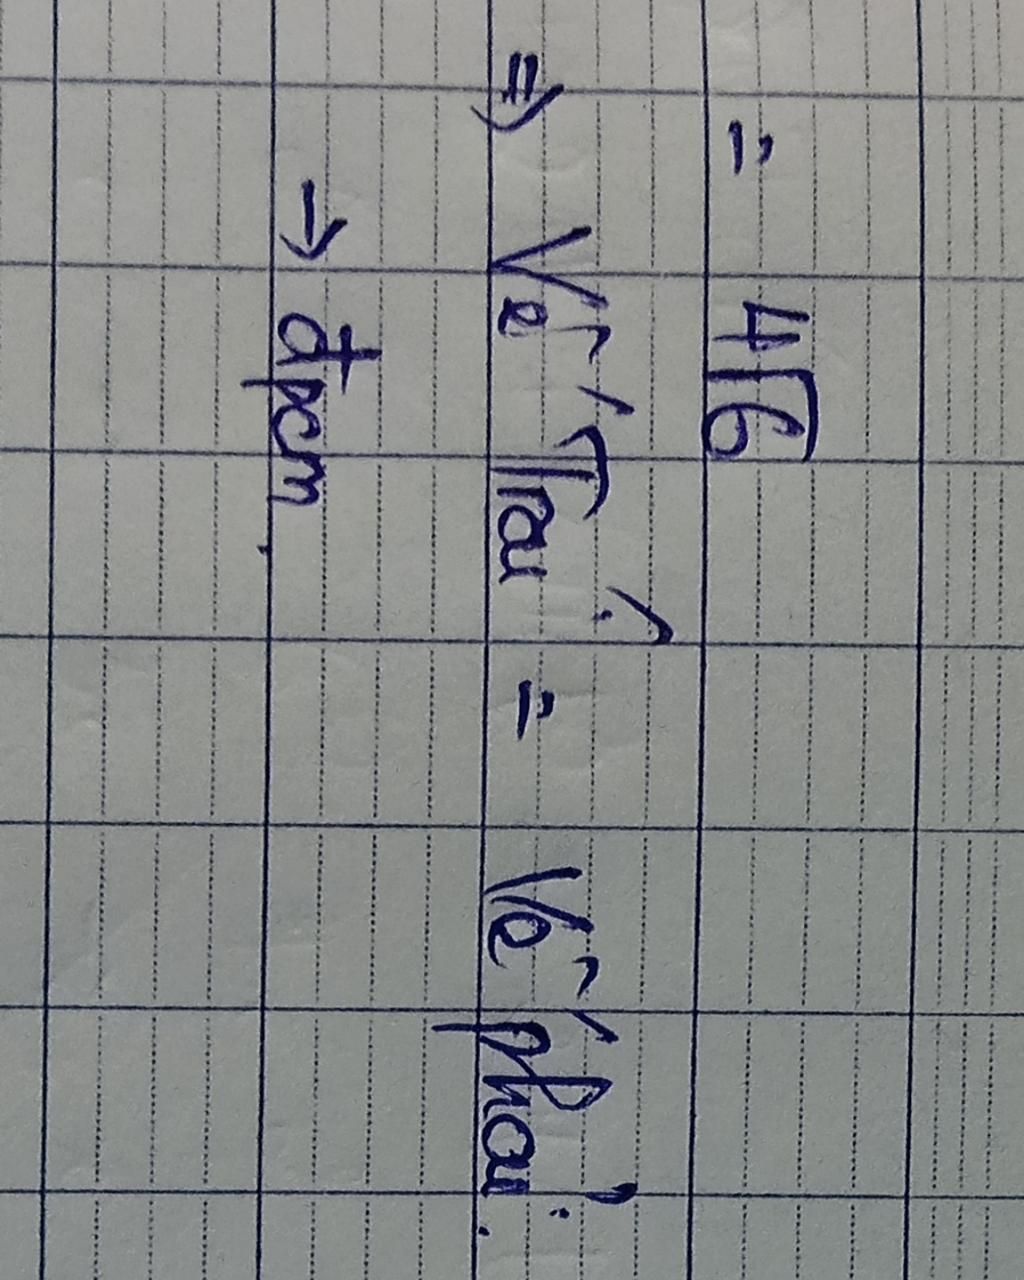 = 4√6
⇒ Vế Trái = Vế phải.
→ đpcm.